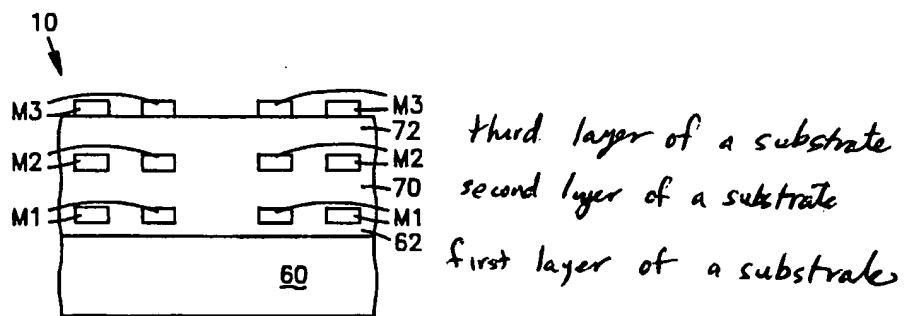 10
M3 M3
72
third layer of a substrate
M2 M2
second layer of a substrate
70
M1 M1
62
first layer of a substrate
60